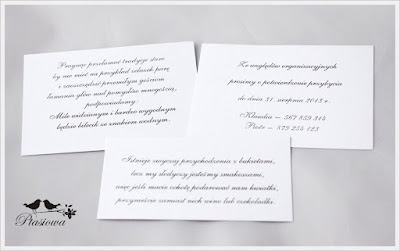 Pragnąc przełamać tradycje stare
by nie mieć na przykład żelazek parę
i zaoszczędzić przemiłym gościom
łamania głów nad pomysłów mnogością,
podpowiadamy:
Mile widzianym i bardzo wygodnym
będzie bilecik ze znakiem wodnym.
Ze względów organizacyjnych
prosimy o potwierdzenie przybycia
do dnia 31. sierpnia 2013 r.
Klaudia – 567 859 314
Piotr – 879 254 123
Istnieje zwyczaj przychodzenia z bukietami,
lecz my słodyczy jesteśmy smakoszami,
więc jeśli macie ochotę podarować nam kwiatki,
przynieście zamiast nich wino lub czekoladki.
Ptasiowa